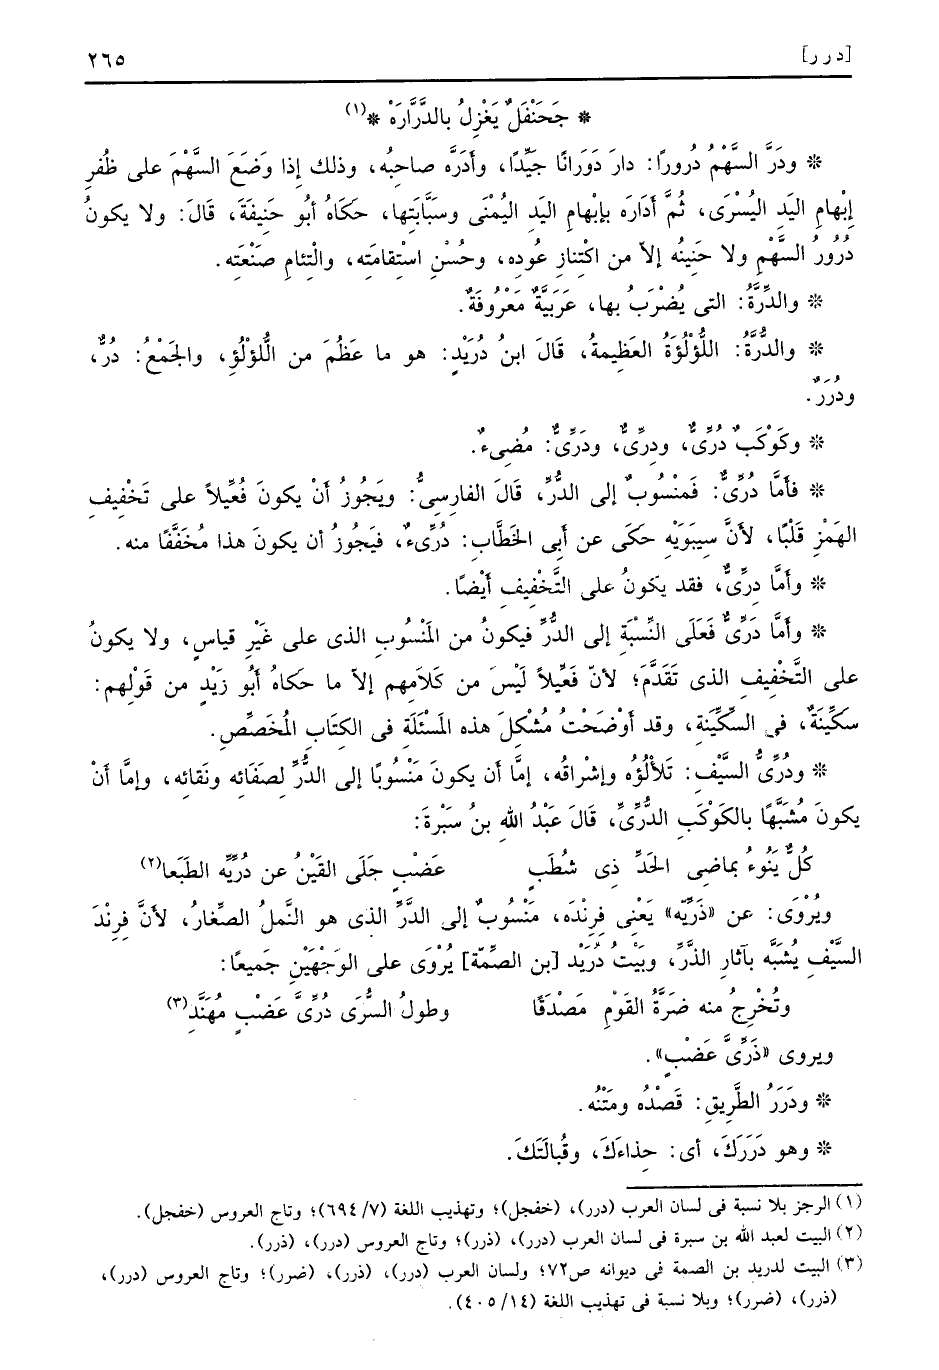 [درر] ٢٦٥
* جَحَنْفَلٌ يَغْزِلُ بالدَّرَّارَهْ *(١)
* ودَرَّ السَّهْمُ دُرورًا: دارَ دَوَرانًا جَيِّدًا، وأدَرَّه صاحبُه، وذلك إذا وَضَعَ السَّهْمَ على ظُفرِ
إِبْهامِ اليَدِ اليُسْرَى، ثُمَّ أدَارَه بإبهامِ اليَدِ اليُمْنَى وسَبَّابَتِها، حَكاهُ أبُو حَنِيفَةَ، قَالَ: ولا يكونُ
دُرُورُ السَّهْمِ ولا حَنِينُه إلاّ من اكْتِنازِ عُودِه، وحُسْنِ اسْتِقامَتِه، والْتِئامِ صَنْعَتِه.
* والدِّرَّةُ: التى يُضْرَبُ بها، عَرَبِيَّةٌ مَعْرُوفَةٌ.
* والدُّرَّةُ: اللُّؤْلُؤَةُ العَظِيمةُ، قَالَ ابنُ دُرَيْدٍ: هو ما عَظُمَ من اللُّؤْلُؤِ، والجَمْعُ: دُرٌّ،
ودُرَرٌ.
* وكَوْكَبٌ دُرِّىٌّ، ودِرِّىٌّ، ودَرِّىٌّ: مُضِىءٌ.
* فأمَّا دُرِّىٌّ: فَمنْسُوبٌ إلى الدُّرِّ، قَالَ الفارسِىُّ: ويَجُوزُ أنْ يكونَ فُعِّيلاً على تَخْفِيفِ
الهَمْزِ قَلْبًا، لأنَّ سِيبَوَيْهِ حكَى عن أبِى الخَطَّاب: دُرِّىءٌ، فيَجُوزُ أن يكونَ هذا مُخَفَّفًا منه.
* وأمَّا دِرِّىٌّ، فقد يكونُ على التَّخْفِيفِ أيْضًا.
* وأمَّا دَرِّىٌّ فَعَلَى النِّسْبَةِ إلى الدُّرِّ فيكونُ من المَنْسُوب الذى على غَيْرِ قياسٍ، ولا يكونُ
على التَّخْفِيفِ الذى تَقَدَّمَ؛ لأنّ فَعِّيلاً لَيْسَ من كَلاَمِهم إلاّ ما حكاهُ أبُو زَيْدٍ من قَوْلِهم:
سَكِّينَةٌ، فى السِّكِّينَةِ، وقد أوْضَحْتُ مُشْكلَ هذه المَسْئَلَةِ فى الكتَابِ المُخَصِّصِ.
* ودُرِّىُّ السَّيْفِ: تَلألُؤُه وإشْراقُه، إمَّا أن يكونَ مَنْسُوبًا إلى الدُّرِّ لِصَفائِه ونَقائِه، وإمَّا أنْ
يكونَ مُشَبَّهًا بالكَوْكَبِ الدُّرِّىِّ، قَالَ عَبْدُ اللهِ بنُ سَبْرةَ:
كُلٌّ يَنُوءُ بماضِى الحَدِّ ذِى شُطَبٍ عَضْبٍ جَلَى القَيْنُ عن دُرِّيِّه الطَبَعا(٢)
ويُرْوَى: عن «ذَرِّيِّه» يَعْنِى فِرِنْدَه، مَنْسُوبٌ إلى الذَّرِّ الذى هو النَّملُ الصِّغارُ، لأنَّ فِرِنْدَ
السَّيْفِ يُشَبَّه بآثارِ الذَّرِّ، وبَيْتُ دُرَيْدِ [بن الصِّمَّة] يُرْوَى على الوَجْهَيْنِ جَميعًا:
وتُخْرِجُ منه ضَرَّةُ القَوْمِ مَصْدَقًا وطولُ السُّرَى دُرِّىَّ عَضْبٍ مُهَنَّدِ(٣)
ويروى «ذَرِّىَّ عَضْبٍ».
* ودَرَرُ الطَّرِيقِ: قَصْدُه ومَتْنُه.
* وهو دَرَرَكَ، أى: حِذاءَكَ، وقُبالَتَكَ.
(١) الرجز بلا نسبة فى لسان العرب (درر)، (خفجل)؛ وتهذيب اللغة (٦٩٤/٧)؛ وتاج العروس (خفجل).
(٢) البيت لعبد الله بن سبرة فى لسان العرب (درر)، (ذرر)؛ وتاج العروس (درر)، (ذرر).
(٣) البيت لدريد بن الصمة فى ديوانه ص٧٢؛ ولسان العرب (درر)، (ذرر)، (ضرر)؛ وتاج العروس (درر)،
(ذرر)، (ضرر)؛ وبلا نسبة فى تهذيب اللغة (٤٠٥/١٤).